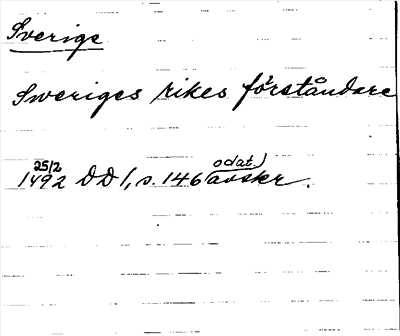 Sverige
Sweriges rikes förståndare
25/2 odat.)
1492 DD 1, s. 146 avskr.